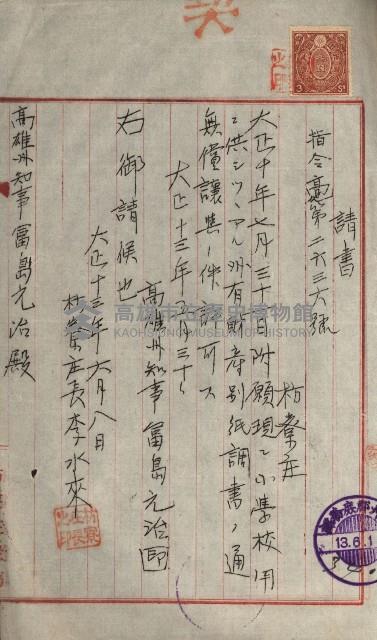 請書
指令高第二六三六號
枋寮庄
大正十年七月三十日附願現ニ小學校用
ニ供シツヽアル州有財産別紙調書ノ通
無償讓與ノ件許可ス
大正十三年五月三十日
高雄州知事富島元治印
右御請候也
大正十三年六月八日
枋寮庄長李水來
高雄州知事富島元治殿
3 Sn
13.6.1
高雄市立歷史博物館
KAOHSIUNG MUSEUM OF HISTORY